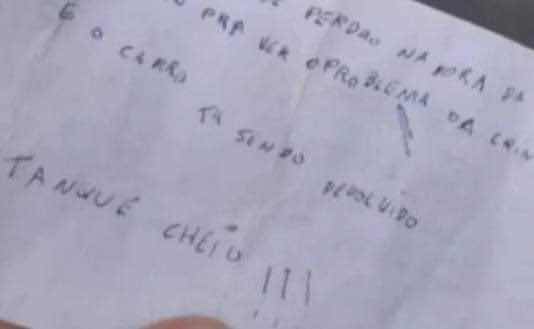 PERDÃO NA HORA DA
PRA VER O PROBLEMA DA
E O CARRO
TÁ SENDO DEVOLVIDO
TANQUE CHEIO !!!